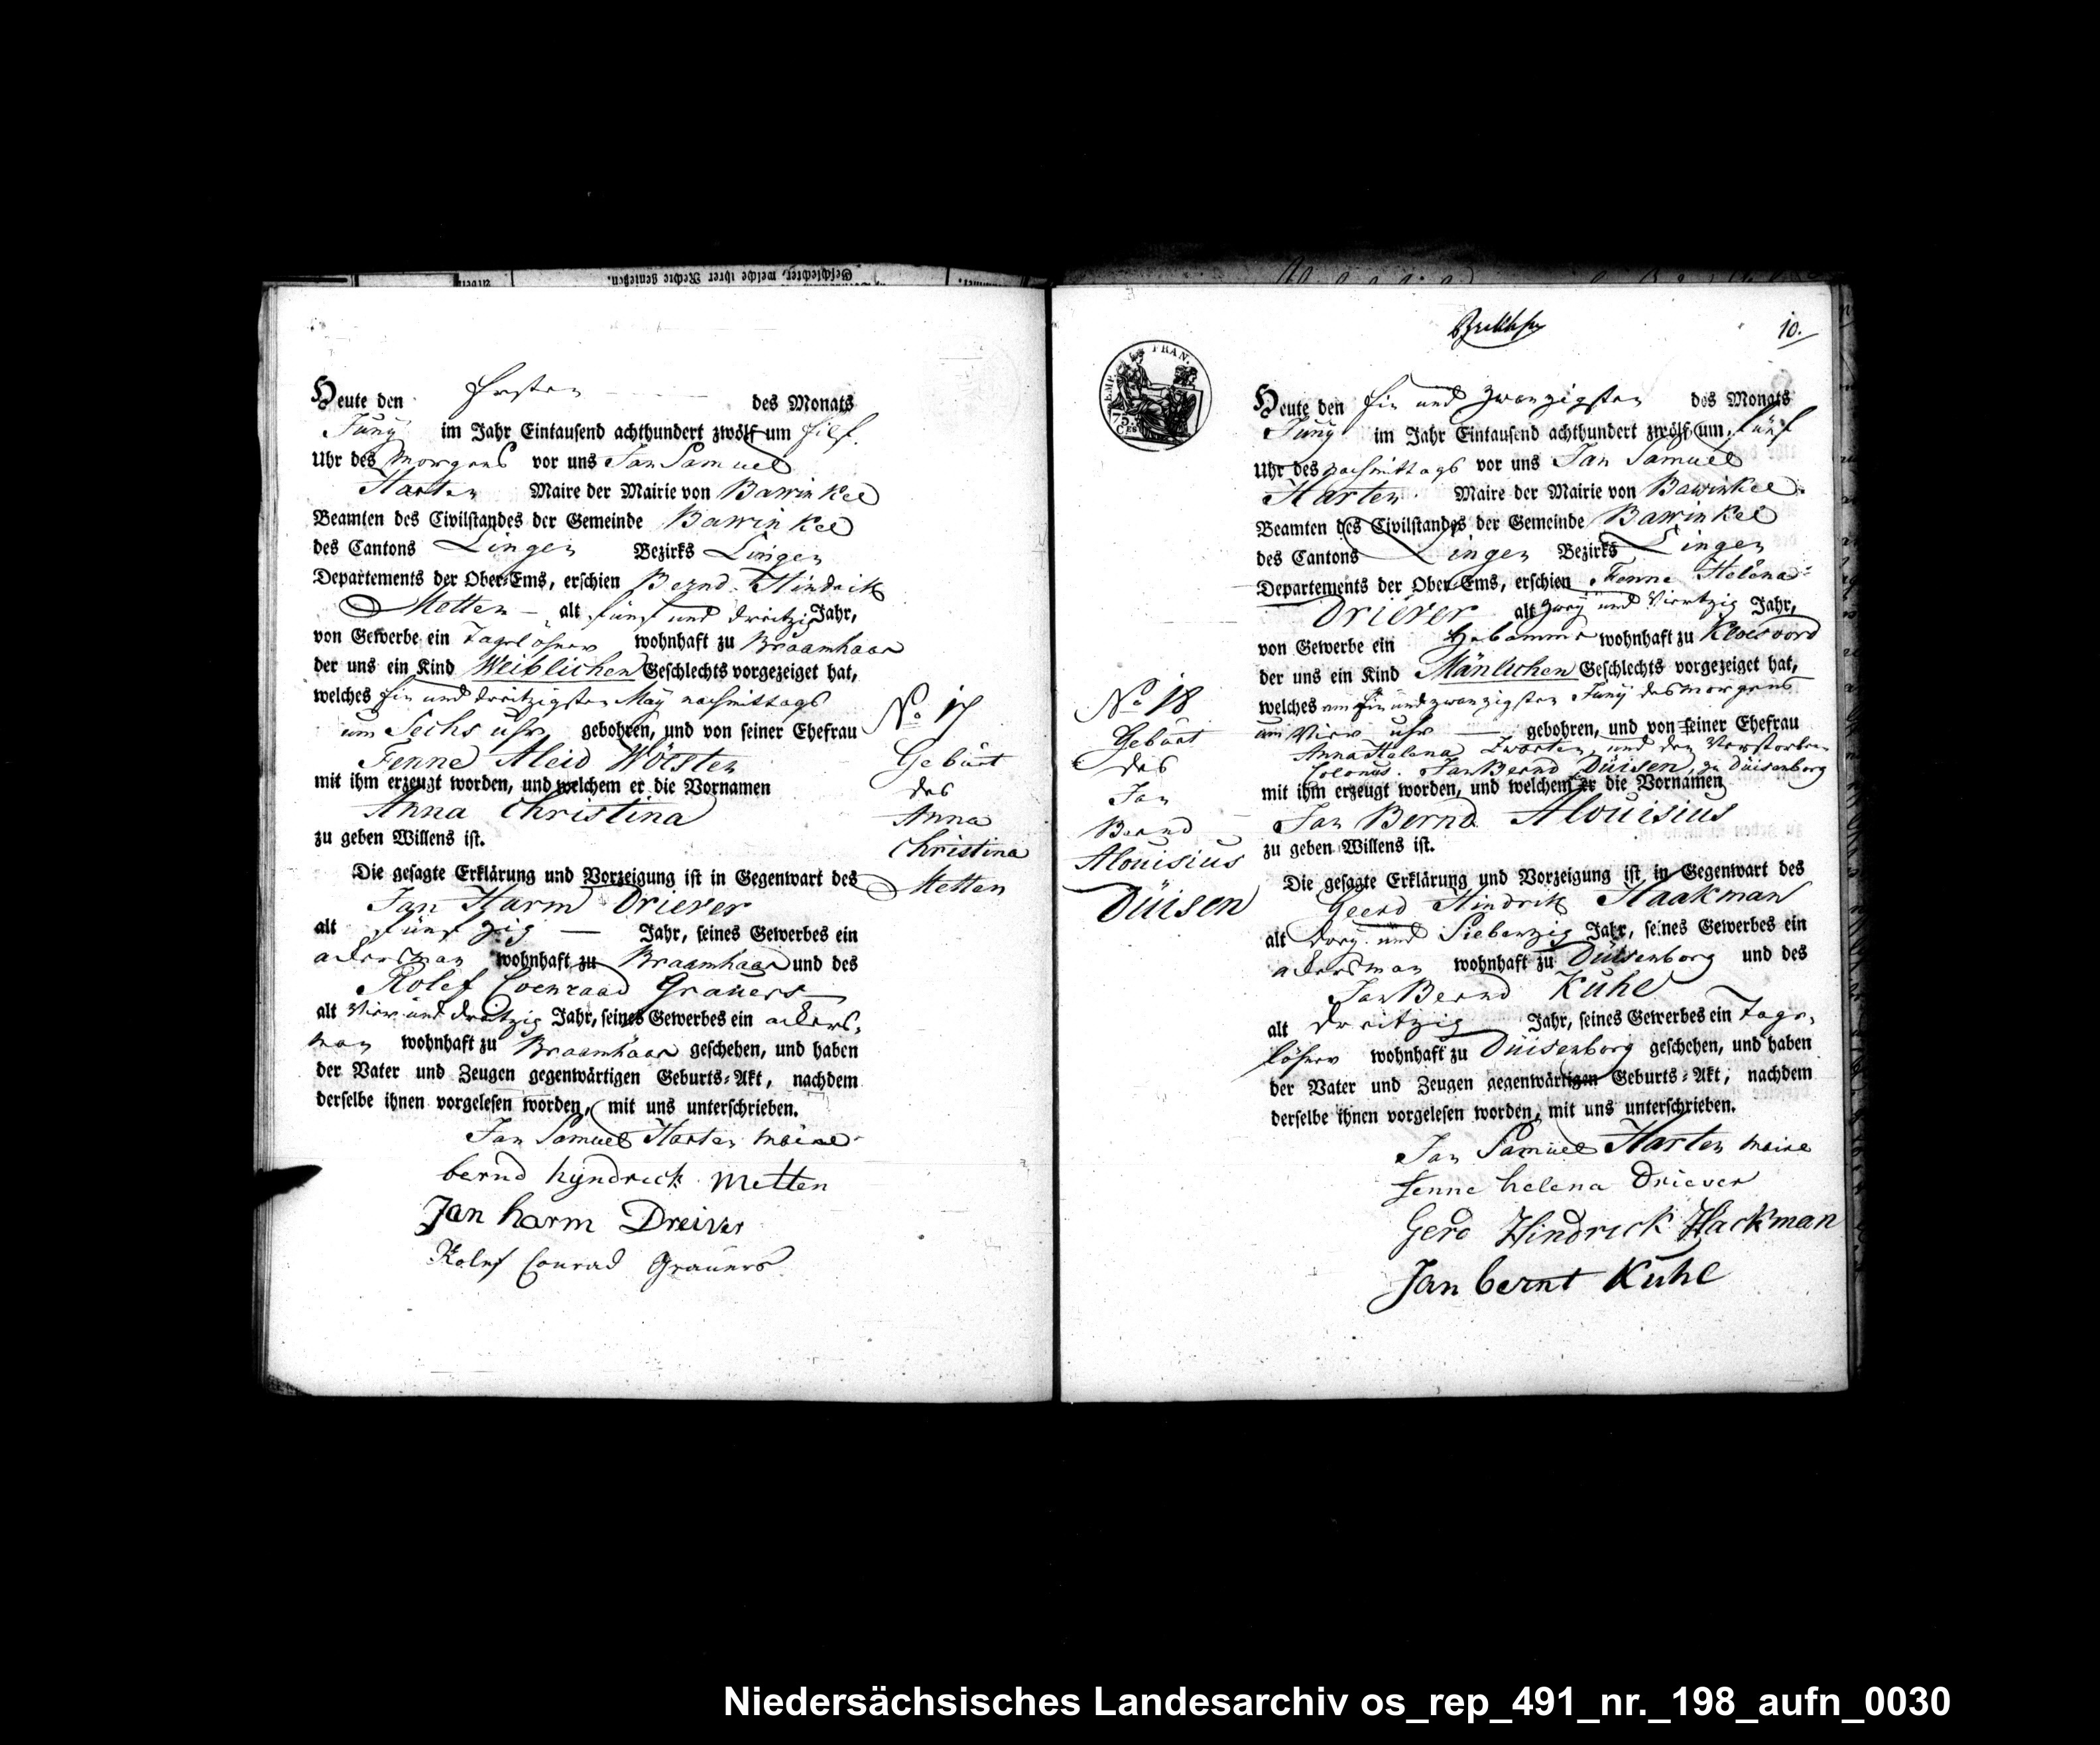 Geschlechter, welche ihrer Rechte genießen.
Heute den Ersten des Monats
Juny im Jahr Eintausend achthundert zwölf um Eilf
Uhr des Morgens vor uns Jan Samuel
Harten Maire der Mairie von Bawinkel
Beamten des Civilstandes der Gemeinde Bawinkel
des Cantons Lingen Bezirks Lingen
Departements der Ober-Ems, erschien Bernd Hindrik
Metten alt fünf und dreitzig Jahr,
von Gewerbe ein Tagelöhner wohnhaft zu Braamhaar
der uns ein Kind Weiblichen Geschlechts vorgezeiget hat,
welches Ein und dreitzigsten May nachmittags
um Sechs uhr gebohren, und von seiner Ehefrau
Fenne Aleid Wösten
mit ihm erzeugt worden, und welchem er die Vornamen
Anna Christina
zu geben Willens ist.
Die gesagte Erklärung und Vorzeigung ist in Gegenwart des
Jan Harm Driever
alt fünfzig Jahr, seines Gewerbes ein
ackersman wohnhaft zu Braamhaar und des
Rolef Coenraad Grauers
alt Vier und dreitzig Jahr, seines Gewerbes ein ackers-
man wohnhaft zu Braamhaar geschehen, und haben
der Vater und Zeugen gegenwärtigen Geburts-Akt, nachdem
derselbe ihnen vorgelesen worden, mit uns unterschrieben.
Jan Samuel Harten maire
bernd hyndrick Metten
Jan harm Dreiver
Rolef Conrad Grauers
No. 17
Geburt
des
Anna
Christina
Metten
10.
EMP. FRAN.
75
CES
No. 18
Geburt
des
Jan
Bernd
Alouisius
Düisen
Heute den Ein und zwanzigsten des Monats
Juny im Jahr Eintausend achthundert zwölf um fünf
Uhr des nachmittags vor uns Jan Samuel
Harten Maire der Mairie von Bawinkel
Beamten des Civilstandes der Gemeinde Bawinkel
des Cantons Lingen Bezirks Lingen
Departements der Ober-Ems, erschien Fenne Helena
Driever alt zwey und Viertzig Jahr,
von Gewerbe ein Hebamme wohnhaft zu
der uns ein Kind Mänlichen Geschlechts vorgezeiget hat,
welches am Ein und zwanzigsten Juny des morgens
um Vier uhr gebohren, und von seiner Ehefrau
Anna Helena und den Verstorbenen
Colonus Jan Bernd Düisen zu Düisenborg
mit ihm erzeugt worden, und welchem er die Vornamen
Jan Bernd Alouisius
zu geben Willens ist.
Die gesagte Erklärung und Vorzeigung ist in Gegenwart des
Geerd Hindrik Haakman
alt drey und Siebenzig Jahr, seines Gewerbes ein
ackersman wohnhaft zu Düisenborg und des
Jan Bernd Kuhl
alt dreitzig Jahr, seines Gewerbes ein Tage-
löhner wohnhaft zu Düisenborg geschehen, und haben
der Vater und Zeugen gegenwärtigen Geburts-Akt, nachdem
derselbe ihnen vorgelesen worden, mit uns unterschrieben.
Jan Samuel Harten maire
fenne helena Driever
Gerd Hindrick Hackman
Jan bernt Kuhl
Niedersächsisches Landesarchiv os_rep_491_nr._198_aufn_0030